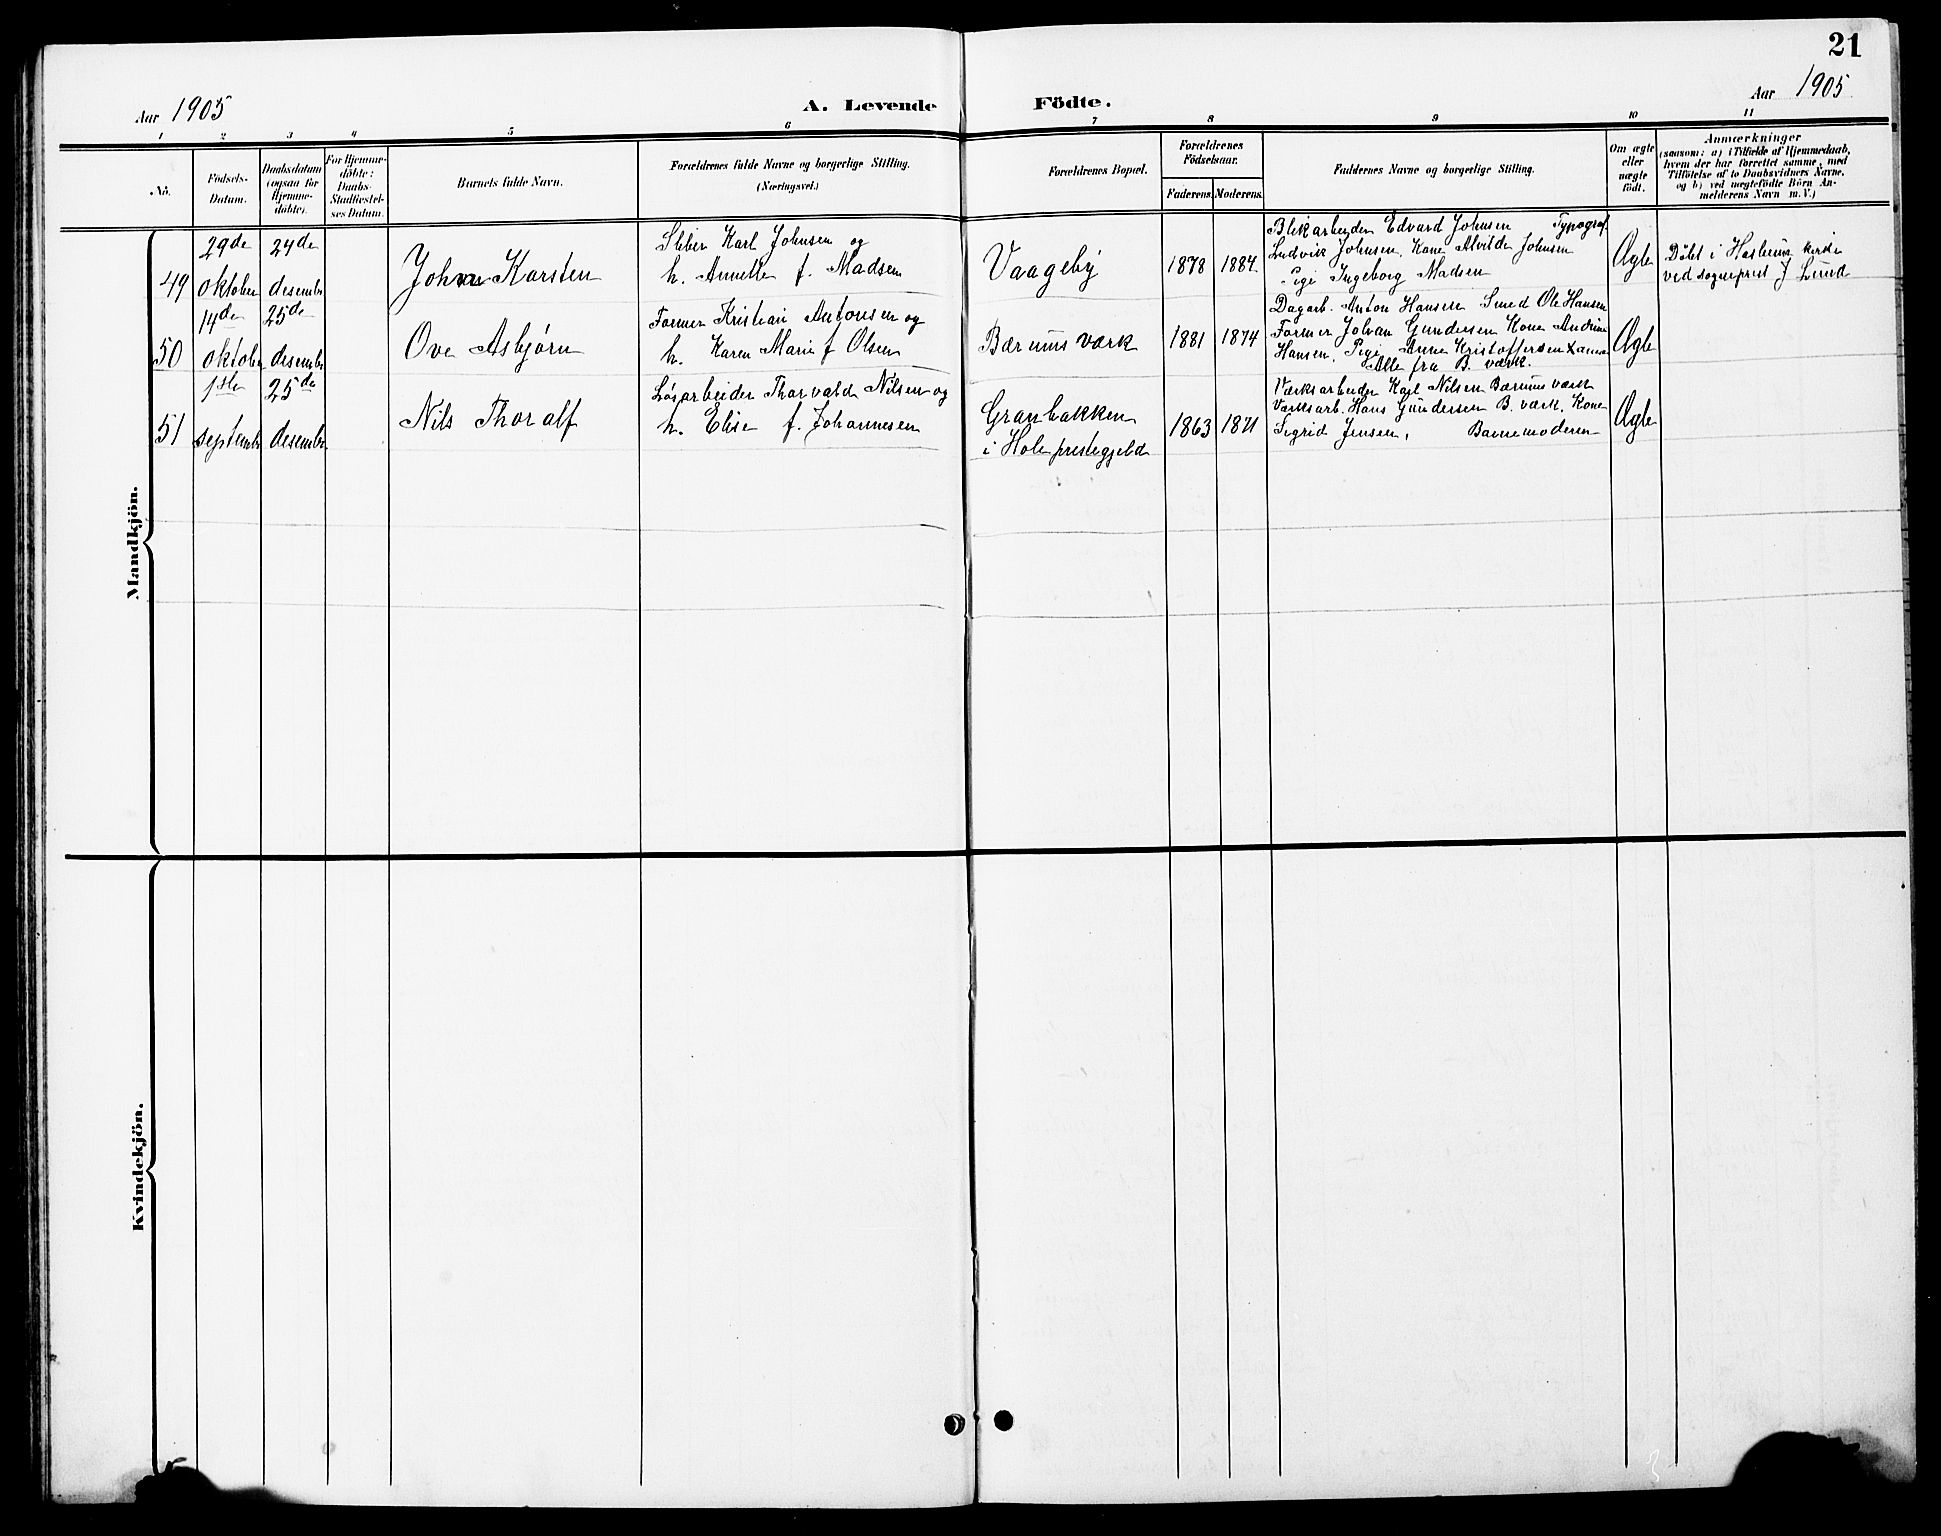 21
Aar 1905
A. Levende Födte.
Aar 1905
1 2 3 4 5 6 7 8 9 10 11
No.
Födsels-
Datum.
Daabsdatum
(ogsaa for
Hjemme-
döbte).
For Hjemme-
döbte:
Daabs-
Stadfæstel-
ses Datum.
Barnets fulde Navn.
Forældrenes fulde Navne og borgerlige Stilling.
(Næringsvei.)
Forældrenes Bopæl.
Forældrenes
Födselsaar.
Faderens. Moderens.
Faddernes Navne og borgerlige Stilling.
Om ægte
eller
uægte
födt.
Anmærkninger
(saasom: a) i Tilfælde af Hjemmedaab,
hvem der har forrettet samme, med
Tilföielse af to Daabsvidners Navne,
og b) ved uægtefödte Börn An-
melderens Navn m. V.)
Mandkjön.
49
29de
oktober
24de
desembr
John Karsten
Sliber Karl Johnsen og
h. Annette f. Madsen
Vaageby
1878 1884
Blikarbeider Edvard Johnsen Typograf
Ludvik Johnsen, Kone Alvilde Johnsen
Pige Ingeborg Madsen
Ægte
Døbt i Haslum kirke
ved sogneprest J Lund
50
14de
oktober
25de
desembr
Ove Asbjørn
Former Kristian Antonsen og
h. Karen Marie f Olsen
Bærums værk
1881 1874
Dagarb. Anton Hansen Smed Ole Hansen
Former Johan Gundersen Kone Andrine
Hansen, Pige Anne Kristoffersen
Alle fra B. værk.
Ægte
51
1ste
septembr
25de
desembr.
Nils Thoralf
Løsarbeider Thorvald Nilsen og
h. Elise f. Johannesen
Granbakken
i Hole prestegjeld
1863 1871
Værksarbeider Karl Nilsen Bærums værk
Værksarb. Hans Gundersen B. værk, Kone
Sigrid Jensen, Barnemoderen
Ægte
Kvindekjön.